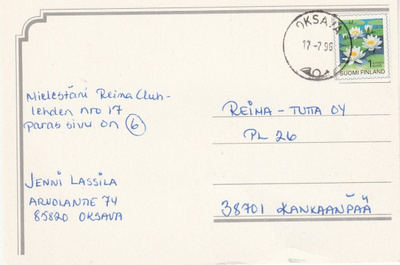 OKSAVA
17-7.96
1
SUOMI FINLAND
Mielestäni Reima Club-
lehden nro 17
paras sivu on 6
JENNI LASSILA
ARVOLANTIE 74
85820 OKSAVA
REIMA-TUTTA OY
PL 26
38701 KANKAANPÄÄ